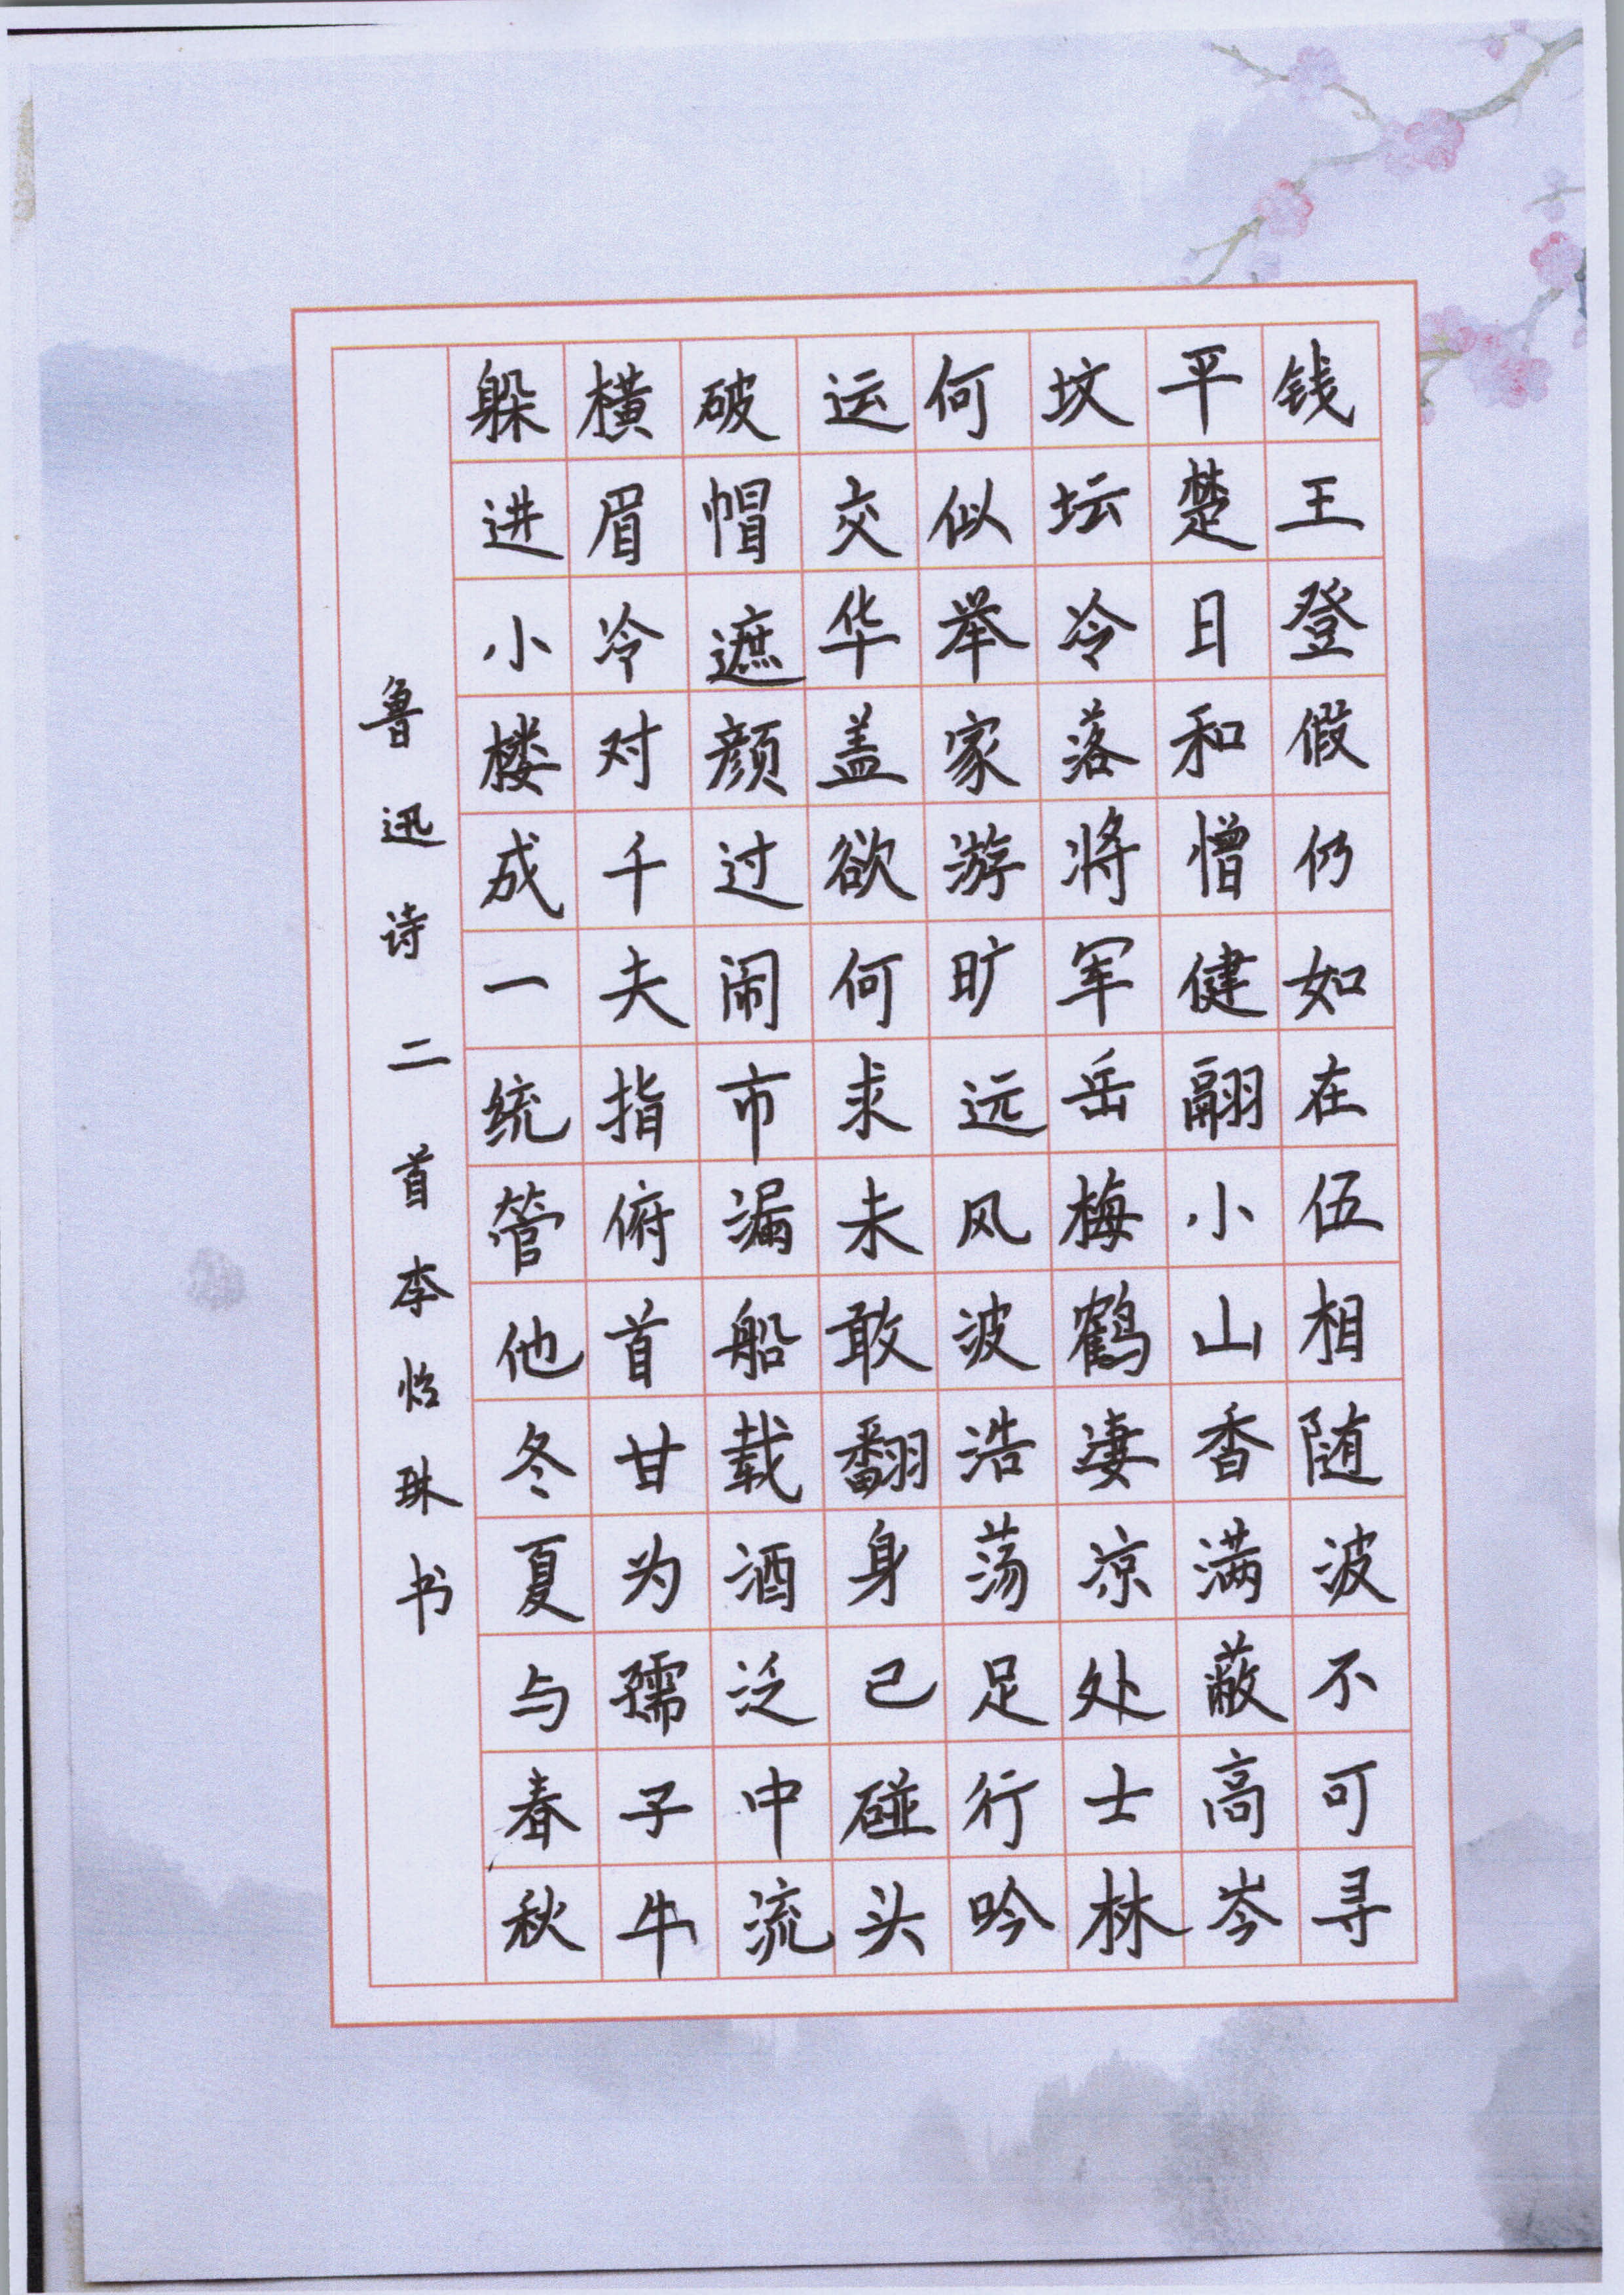 钱王登假仍如在伍相随波不可寻
平楚日和憎健翮小山香满蔽高岑
坟坛冷落将军岳梅鹤凄凉处士林
何似举家游旷远风波浩荡足行吟
运交华盖欲何求未敢翻身已碰头
破帽遮颜过闹市漏船载酒泛中流
横眉冷对千夫指俯首甘为孺子牛
躲进小楼成一统管他冬夏与春秋
鲁迅诗二首李怡琳书